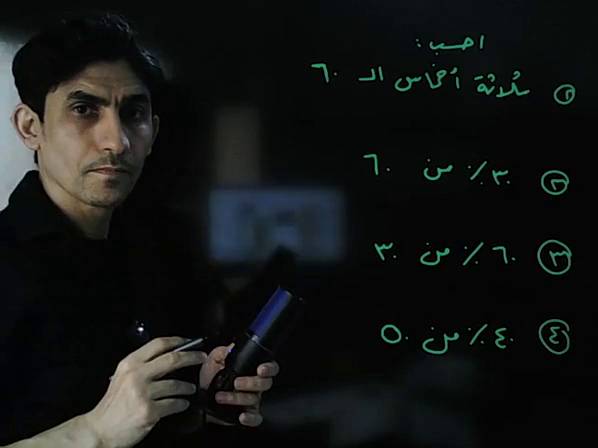 احسب :
① ثلاثة أخماس الـ ٦٠
② ٣٠٪ من ٦٠
③ ٦٠٪ من ٣٠
④ ٤٠٪ من ٥٠